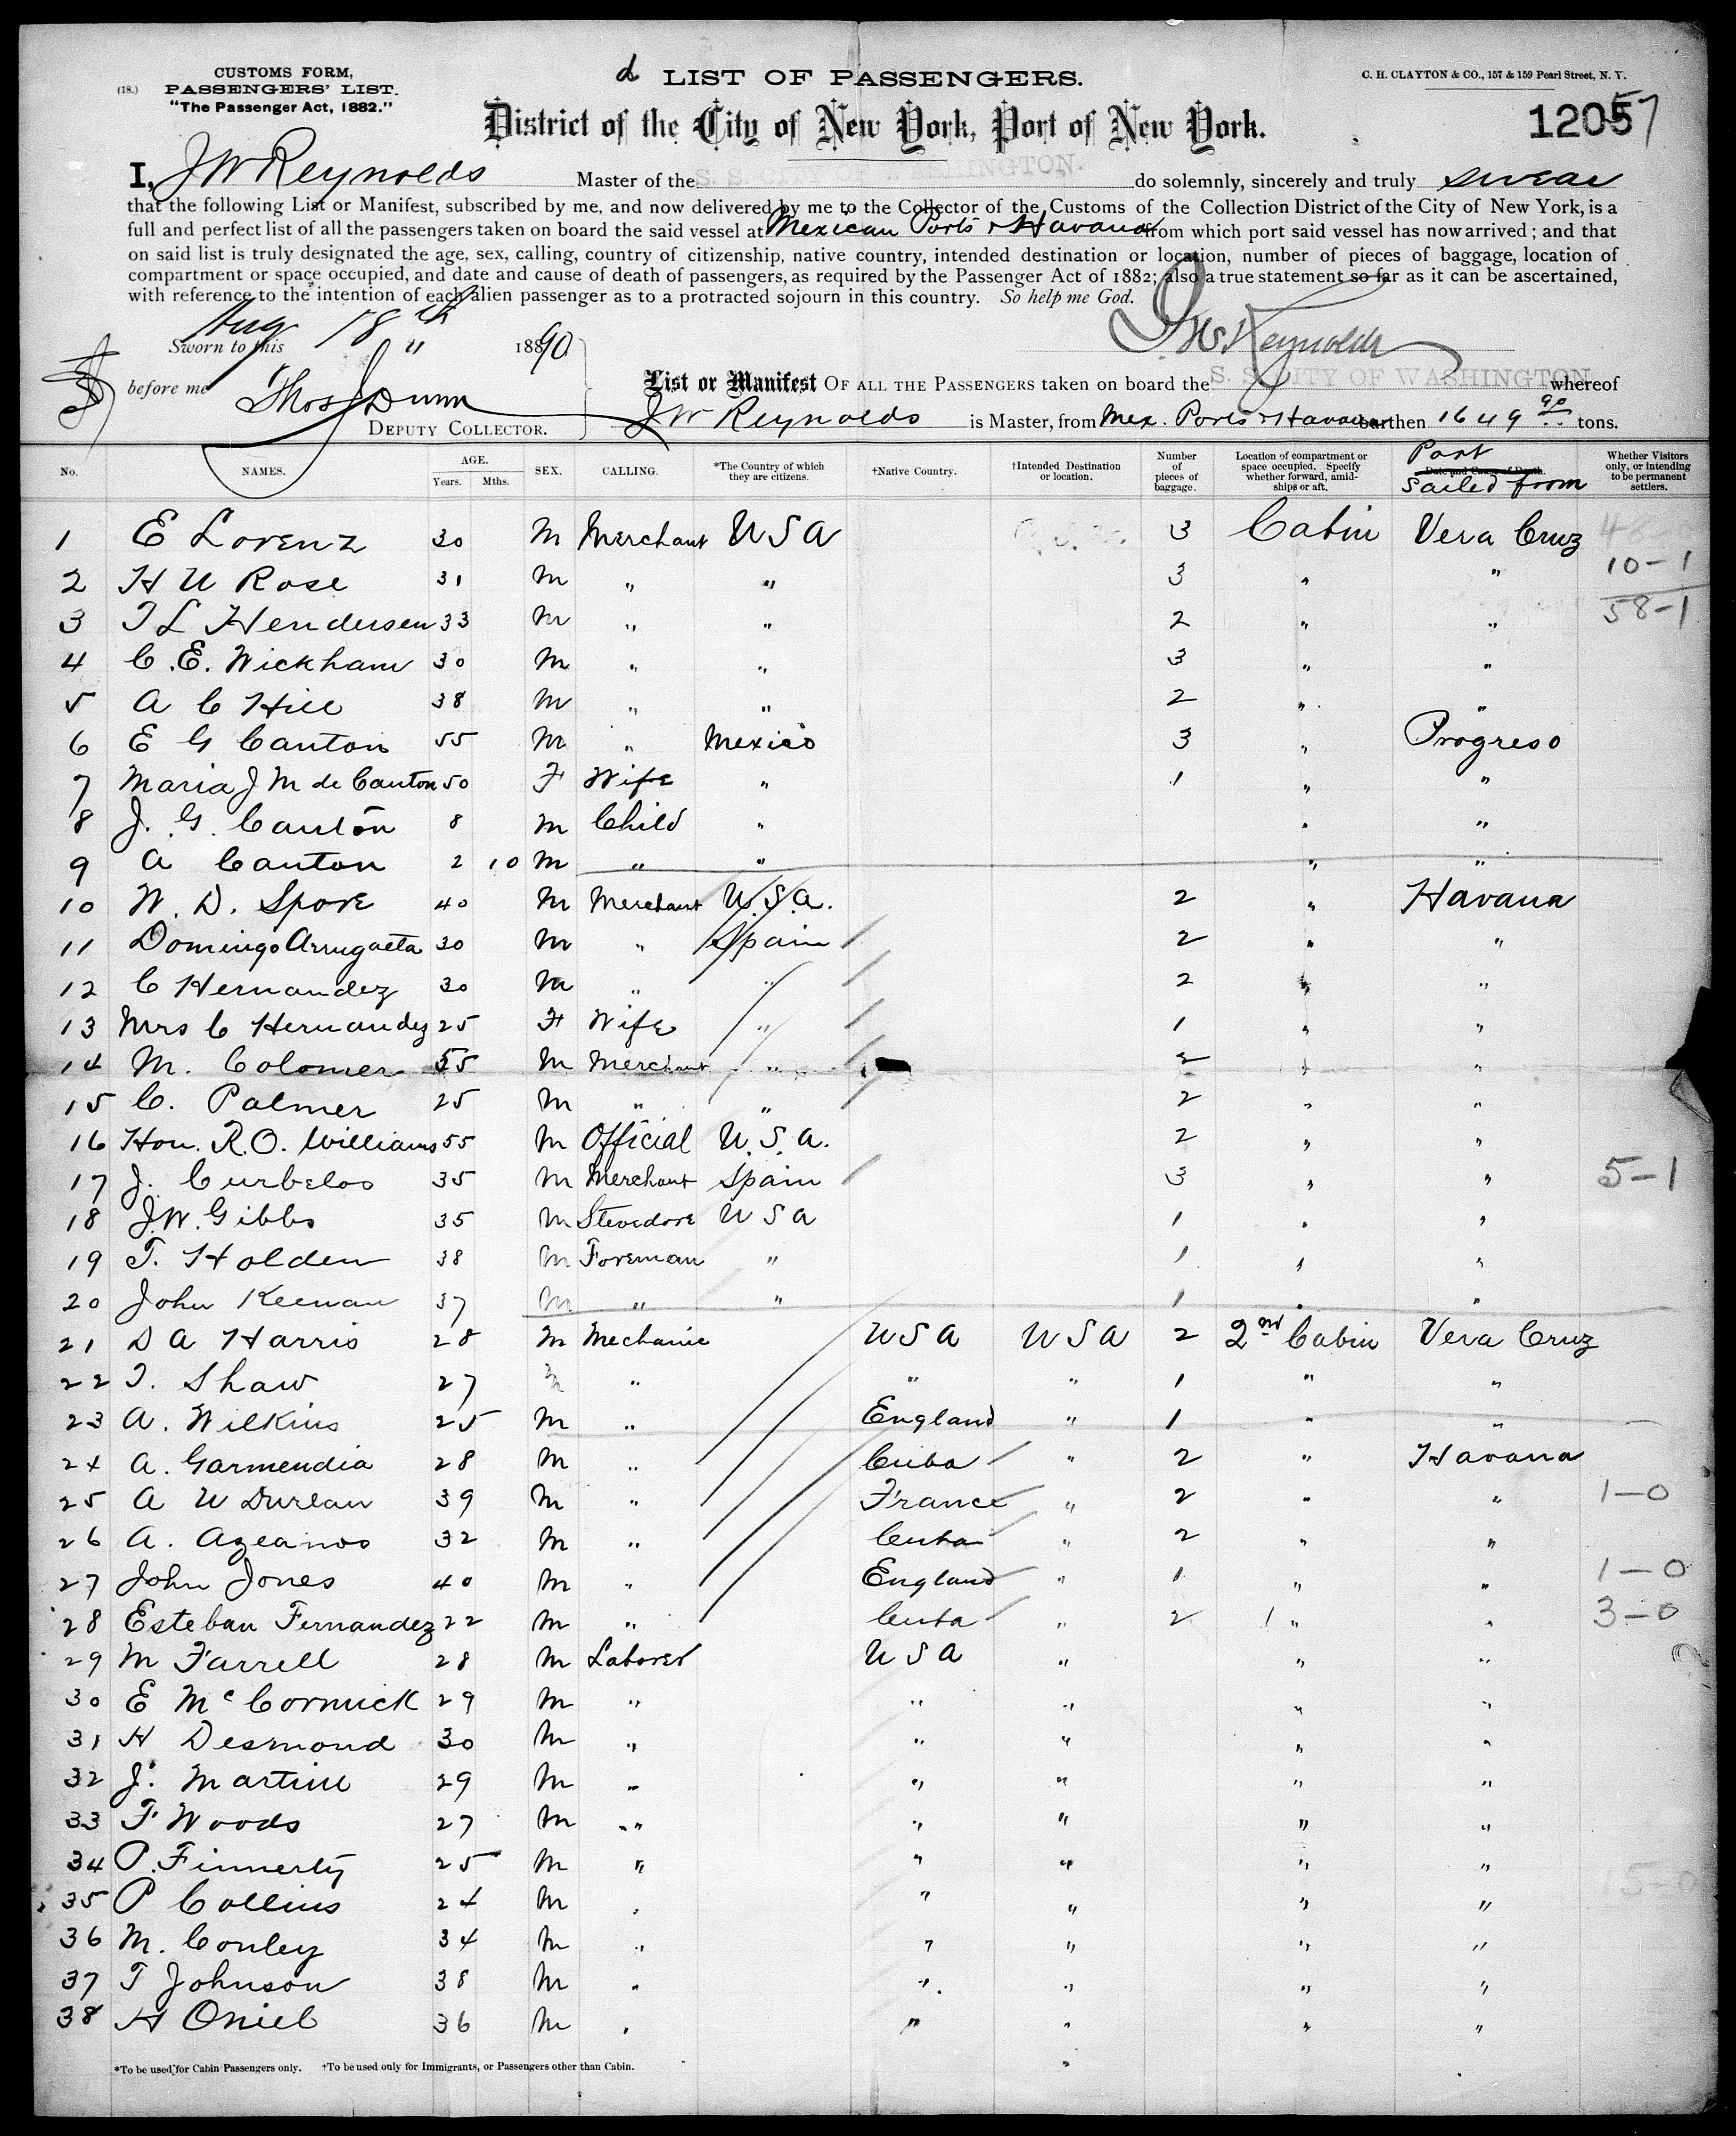 (18.) CUSTOMS FORM,
PASSENGERS' LIST.
"The Passenger Act, 1882."
LIST OF PASSENGERS.
C. H. CLAYTON & CO., 157 & 159 Pearl Street, N. Y.
District of the City of New York, Port of New York.
12057
I, JW Reynolds Master of the S. S. CITY OF WASHINGTON. do solemnly, sincerely and truly swear
that the following List or Manifest, subscribed by me, and now delivered by me to the Collector of the Customs of the Collection District of the City of New York, is a
full and perfect list of all the passengers taken on board the said vessel at Mexican Ports & Havana from which port said vessel has now arrived; and that
on said list is truly designated the age, sex, calling, country of citizenship, native country, intended destination or location, number of pieces of baggage, location of
compartment or space occupied, and date and cause of death of passengers, as required by the Passenger Act of 1882; also a true statement so far as it can be ascertained,
with reference to the intention of each alien passenger as to a protracted sojourn in this country. So help me God.
Sworn to this Aug 18th " 1890
JW Reynolds
before me Thos J Dunn
DEPUTY COLLECTOR.
List or Manifest OF ALL THE PASSENGERS taken on board the S. S. CITY OF WASHINGTON whereof
JW Reynolds is Master, from Mex. Ports & Havana burthen 1649 90 tons.
No. NAMES. AGE. Years. Mths. SEX. CALLING. *The Country of which they are citizens. †Native Country. †Intended Destination or location. Number of pieces of baggage. Location of compartment or space occupied. Specify whether forward, amidships or aft. Date and Cause of Death. Port Sailed from Whether Visitors only, or intending to be permanent settlers.
1 E Lorenz 30 M Merchant USA 3 Cabin Vera Cruz
2 H U Rose 31 M " " 3 " " 10-1
3 T L Hendersen 33 M " " 2 " " 58-1
4 C. E. Wickham 30 M " " 3 " "
5 A C Hill 38 M " " 2 " "
6 E G Canton 55 M " Mexico 3 " Progreso
7 Maria J M de Canton 50 F Wife " 1 " "
8 J. G. Canton 8 M Child " " "
9 A Canton 2 10 M " " " "
10 W. D. Spore 40 M Merchant U.S.A. 2 " Havana
11 Domingo Arrugaeta 30 M " Spain 2 " "
12 C Hernandez 30 M " " 2 " "
13 Mrs C Hernandez 25 F Wife " 1 " "
14 M. Colomer 55 M Merchant " 2 " "
15 C. Palmer 25 M " " 2 " "
16 Hon. R. O. Williams 55 M Official U.S.A. 2 " "
17 J. Curbelos 35 M Merchant Spain 3 " " 5-1
18 J.W. Gibbs 35 M Stevedore USA 1 " "
19 T. Holden 38 M Foreman " 1 " "
20 John Keenan 37 M " " 1 " "
21 D A Harris 28 M Mechanic USA USA 2 2nd Cabin Vera Cruz
22 T. Shaw 27 M " " " 1 " "
23 A. Wilkins 25 M " England " 1 " "
24 A. Garmendia 28 M " Cuba " 2 " Havana
25 A W Durlan 39 M " France " 2 " " 1-0
26 A. Azeanos 32 M " Cuba " 2 " "
27 John Jones 40 M " England " 1 " " 1-0
28 Esteban Fernandez 22 M " Cuba " 2 " " 3-0
29 M Farrell 28 M Laborer USA " " "
30 E McCormick 29 M " " " " "
31 H Desmond 30 M " " " " "
32 J. Martine 29 M " " " " "
33 F Woods 27 M " " " " "
34 P. Finnerty 25 M " " " " "
35 P Collins 24 M " " " " "
36 M. Conley 34 M " " " " "
37 T Johnson 38 M " " " " "
38 H Oniel 36 M " " " " "
*To be used for Cabin Passengers only. †To be used only for Immigrants, or Passengers other than Cabin.